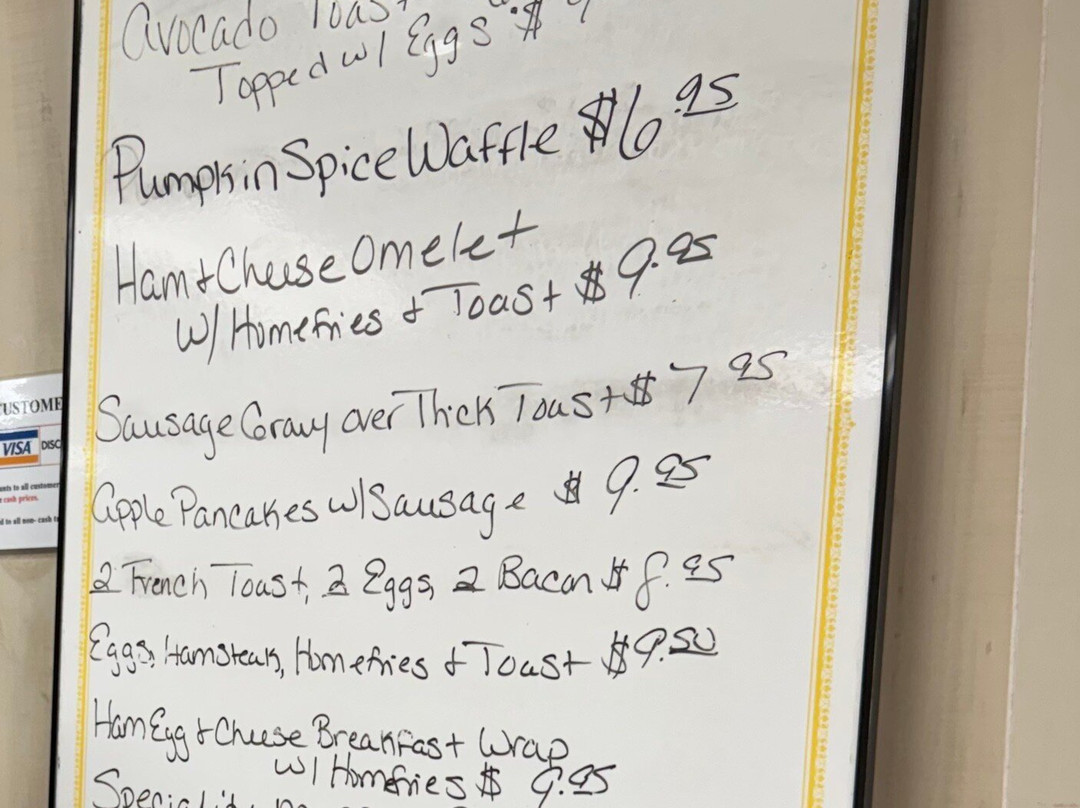 Avocado Toast
Topped w/ Eggs $ 9
Pumpkin Spice Waffle $6.95
Ham & Cheese Omelet
w/ Homefries & Toast $ 9.95
Sausage Gravy over Thick Toast $ 7.95
Apple Pancakes w/ Sausage $ 9.95
2 French Toast, 2 Eggs, 2 Bacon $ 8.95
Eggs, Hamsteak, Homefries & Toast $9.50
Ham Egg & Cheese Breakfast Wrap
w/ Homefries $ 9.95
CUSTOME
VISA DISC
nts to all customer
cash prices.
d to all non-cash